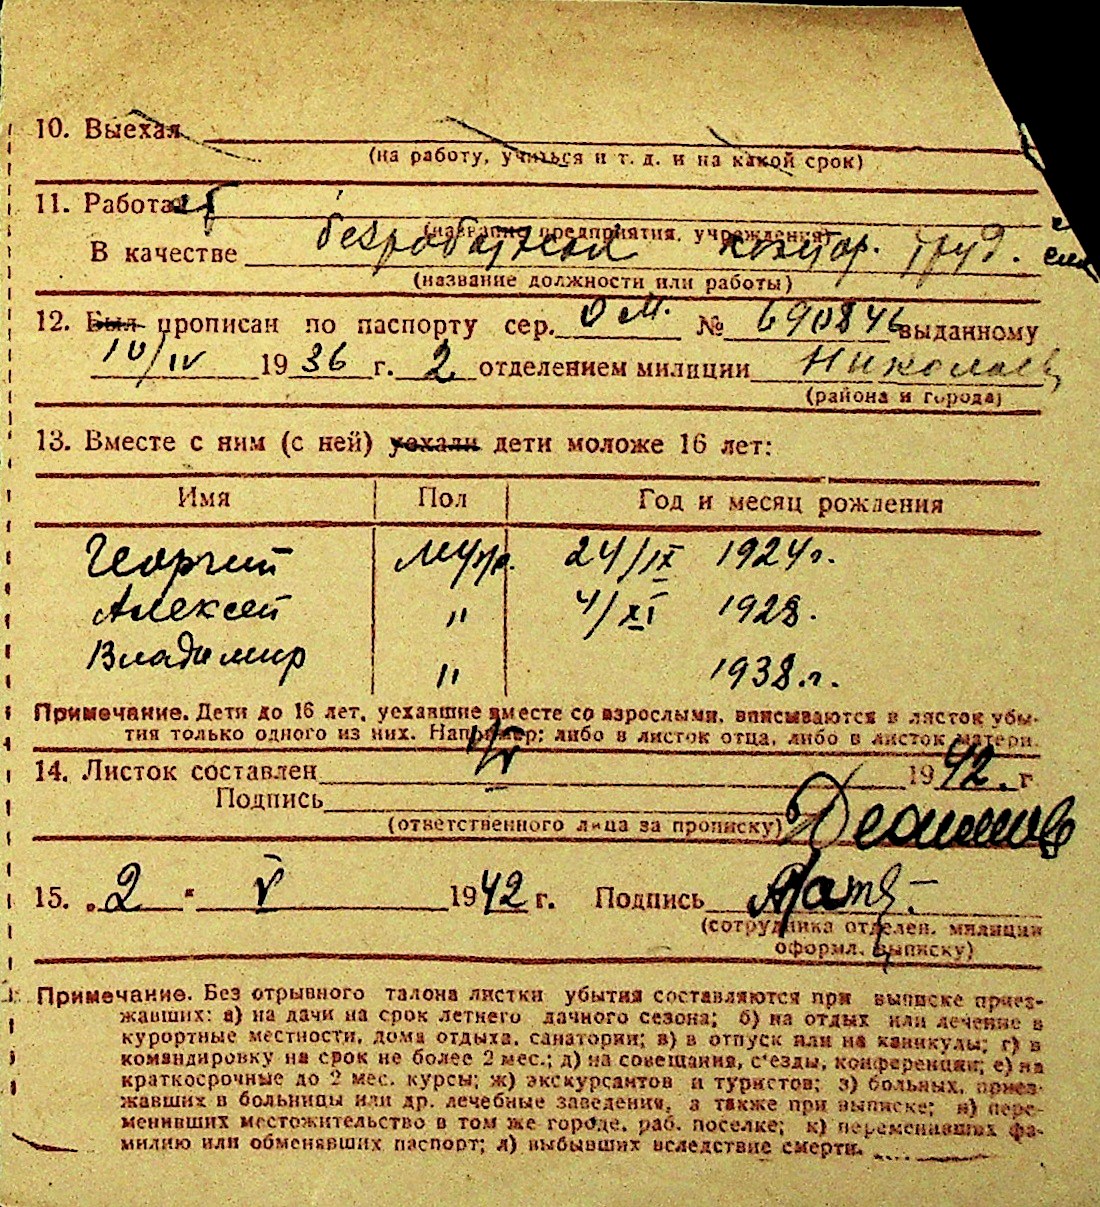 10. Выехал
(на работу, учиться и т. д. и на какой срок)
11. Работа
(название предприятия, учреждения)
В качестве безработная
(название должности или работы)
12. Был прописан по паспорту сер. ОМ. № 690846 выданному
IV 1936 г. 2 отделением милиции Николаев
(района и города)
13. Вместе с ним (с ней) уехали дети моложе 16 лет:
Имя Пол Год и месяц рождения
Георгий муж. 24/IX 1924 г.
Алексей " 4/XI 1928.
Владимир " 1938.г.
Примечание. Дети до 16 лет, уехавшие вместе со взрослыми, вписываются в листок убы-
тия только одного из них. Например: либо в листок отца, либо в листок матери.
14. Листок составлен 1/V 1942. г
Подпись
(ответственного лица за прописку)
15. „2" V 1942 г. Подпись
(сотрудника отделен. милиции
оформл. выписку)
Примечание. Без отрывного талона листки убытия составляются при выписке приез-
жавших: а) на дачи на срок летнего дачного сезона; б) на отдых или лечение в
курортные местности, дома отдыха, санатории; в) в отпуск или на каникулы; г) в
командировку на срок не более 2 мес.; д) на совещания, с'езды, конференции; е) на
краткосрочные до 2 мес. курсы; ж) экскурсантов и туристов; з) больных, приез-
жавших в больницы или др. лечебные заведения, а также при выписке; и) пере-
менивших местожительство в том же городе, раб. поселке; к) переменивших фа-
милию или обменявших паспорт; л) выбывших вследствие смерти.